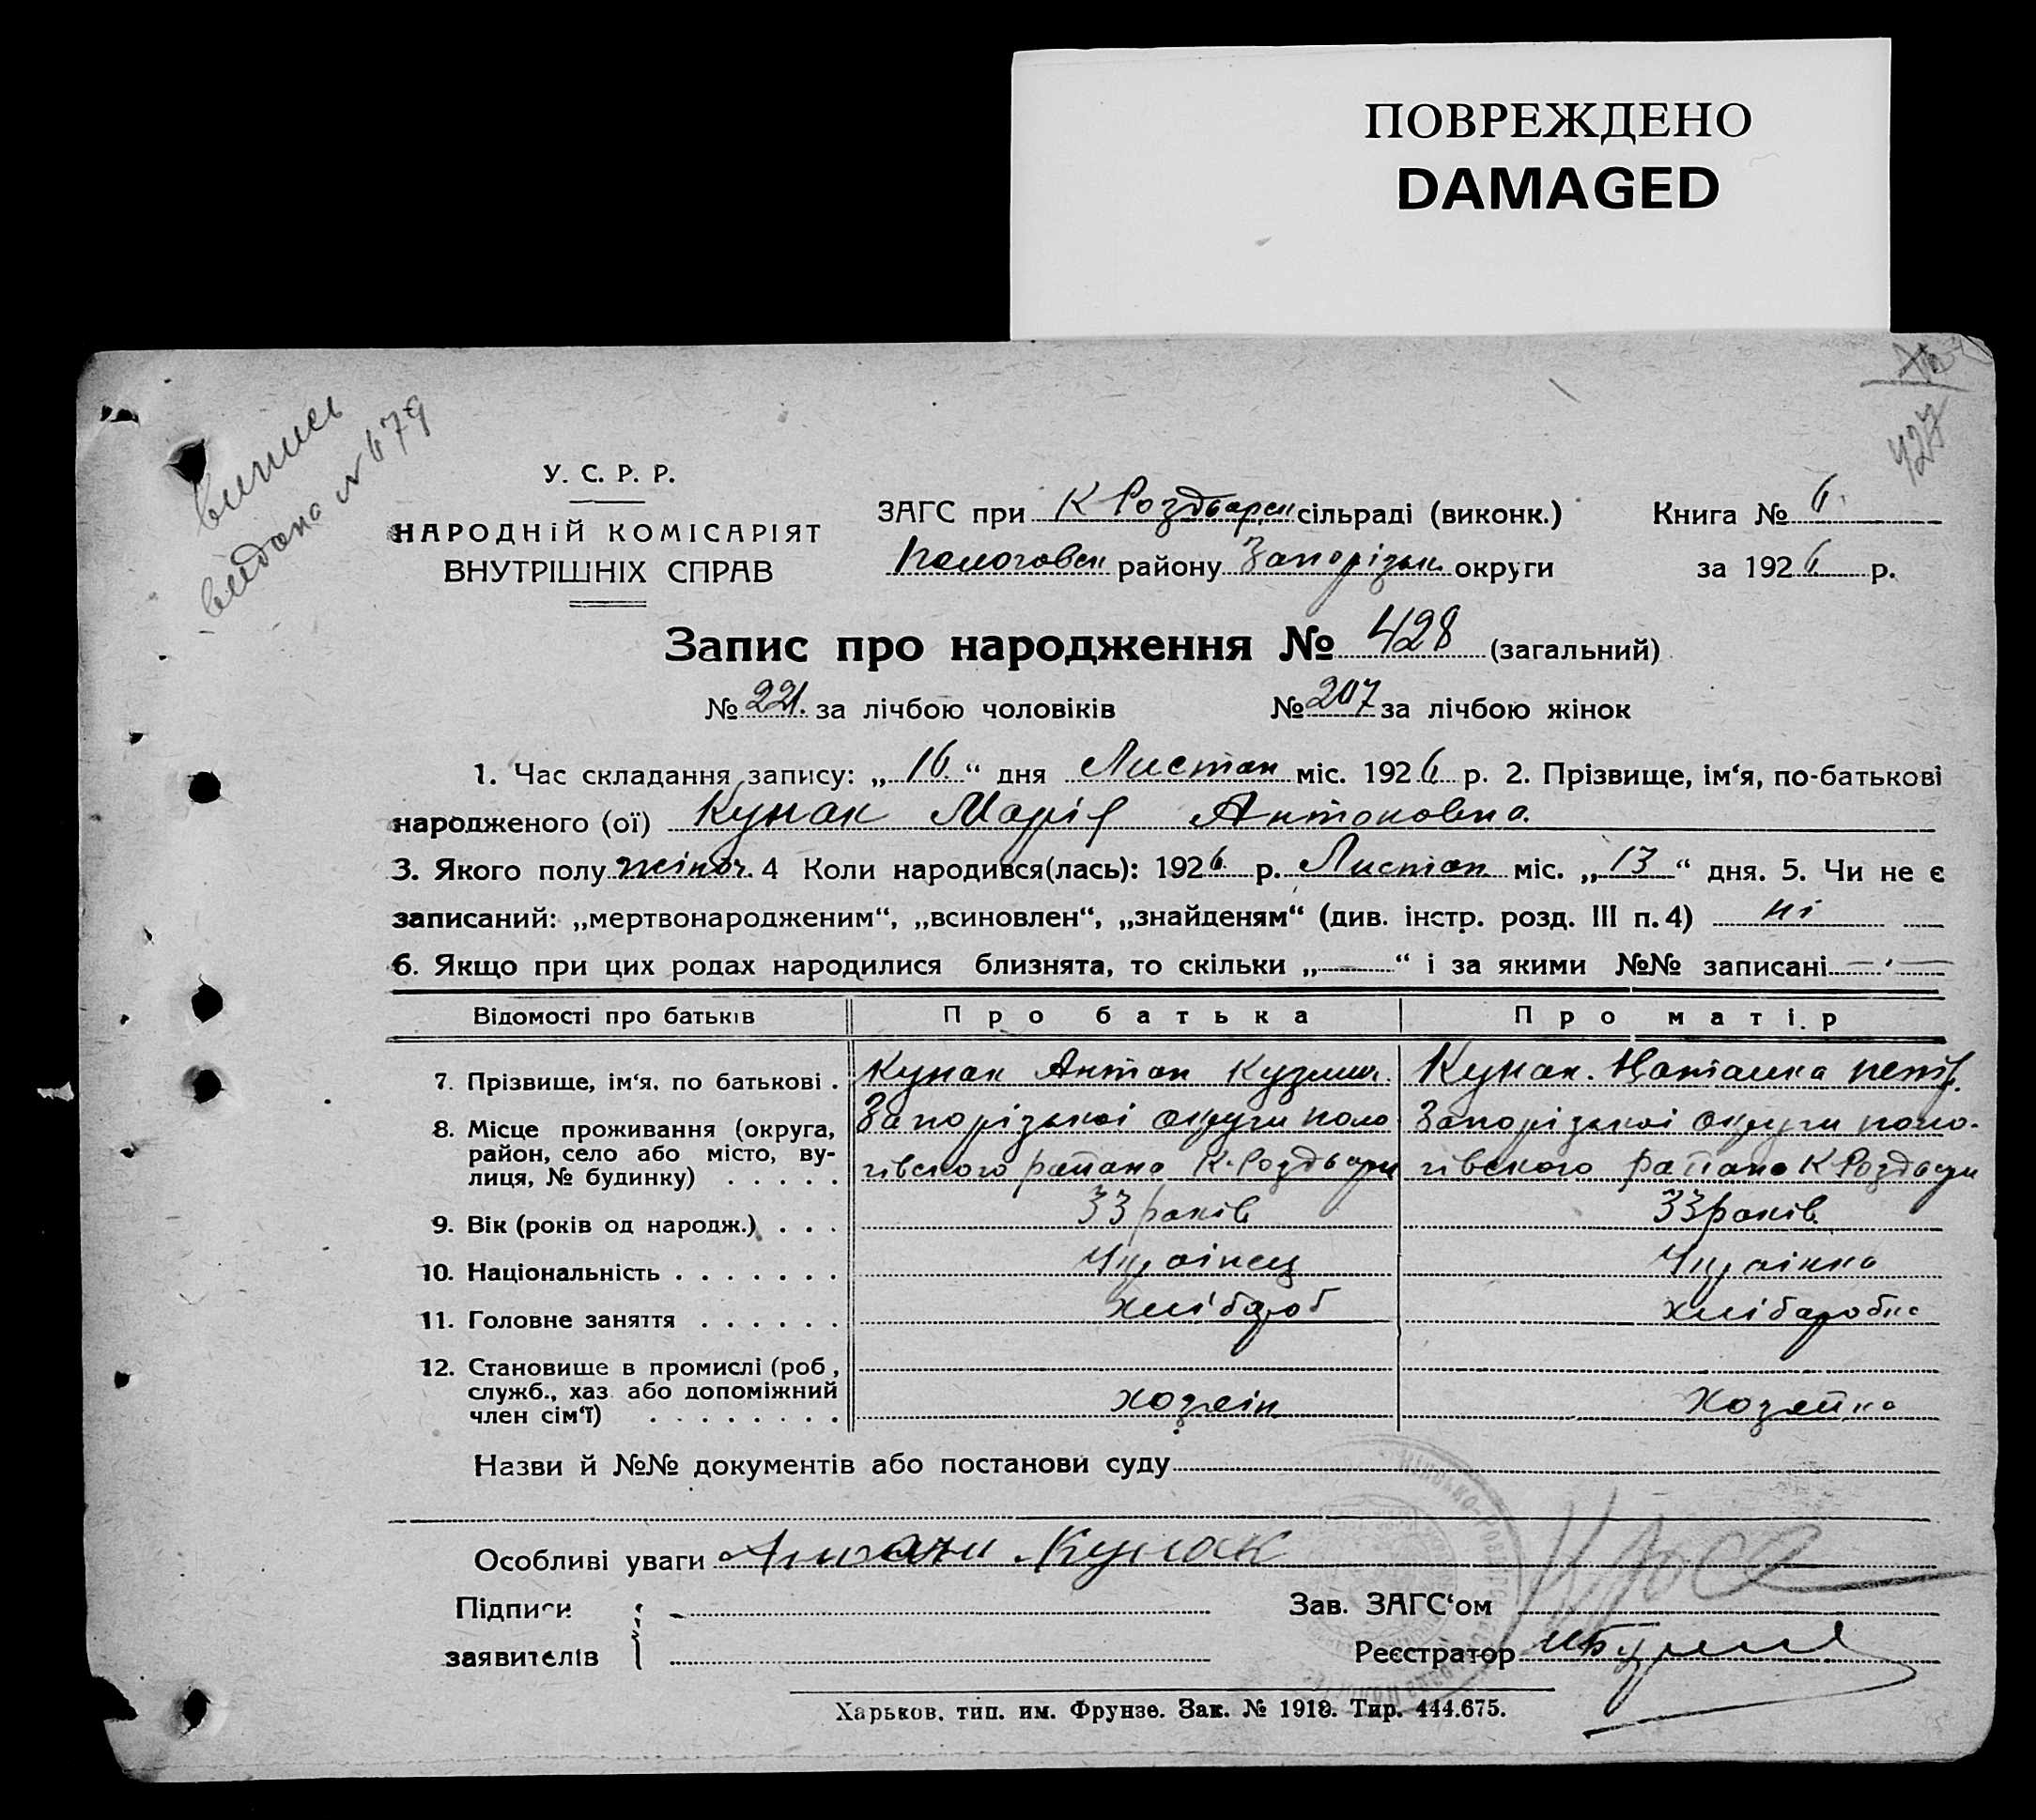 ПОВРЕЖДЕНО
DAMAGED
427
випись
видана № 679
У. С. Р. Р.
НАРОДНІЙ КОМІСАРІЯТ
ВНУТРІШНІХ СПРАВ
ЗАГС при К Роздварск сільраді (виконк.)
Пологовск району Запорізьк. округи
Книга № 6
за 1926 р.
Запис про народження № 428 (загальний)
№ 221. за лічбою чоловіків № 207 за лічбою жінок
1. Час складання запису: „16“ дня Листоп міс. 1926 р. 2. Прізвище, ім‘я, по-батькові
народженого (ої) Кунак Марія Антоновна
3. Якого полу жіноч. 4 Коли народився(лась): 1926 р. Листоп міс. „13“ дня. 5. Чи не є
записаний: „мертвонародженим“, „всиновлен“, „знайденям“ (див. інстр. розд. III п. 4) ні
6. Якщо при цих родах народилися близнята, то скільки „—“ і за якими №№ записані —
Відомості про батьків Про батька Про матір
7. Прізвище, ім‘я, по батькові . Кунак Антон Кузмич. Кунак. Наталка Петр.
8. Місце проживання (округа, Запорізької округи поло Запорізької округи поло-
район, село або місто, ву- гівського район К. Роздвари гівського район К Роздвари
лиця, № будинку) . . . . .
9. Вік (років од народж.) . . . 33 років 33 років.
10. Національність . . . . . . . Українец Українка
11. Головне заняття . . . . . . хлібороб хліборобка
12. Становище в промислі (роб,
служб., хаз або допоміжний хозяін Хозяйка
член сім‘ї) . . . . . . . .
Назви й №№ документів або постанови суду
Особливі уваги Кунак
Підписи
заявителів
Зав. ЗАГС‘ом
Реєстратор
Харьков, тип. им. Фрунзе. Зак. № 1919. Тир. 444.675.